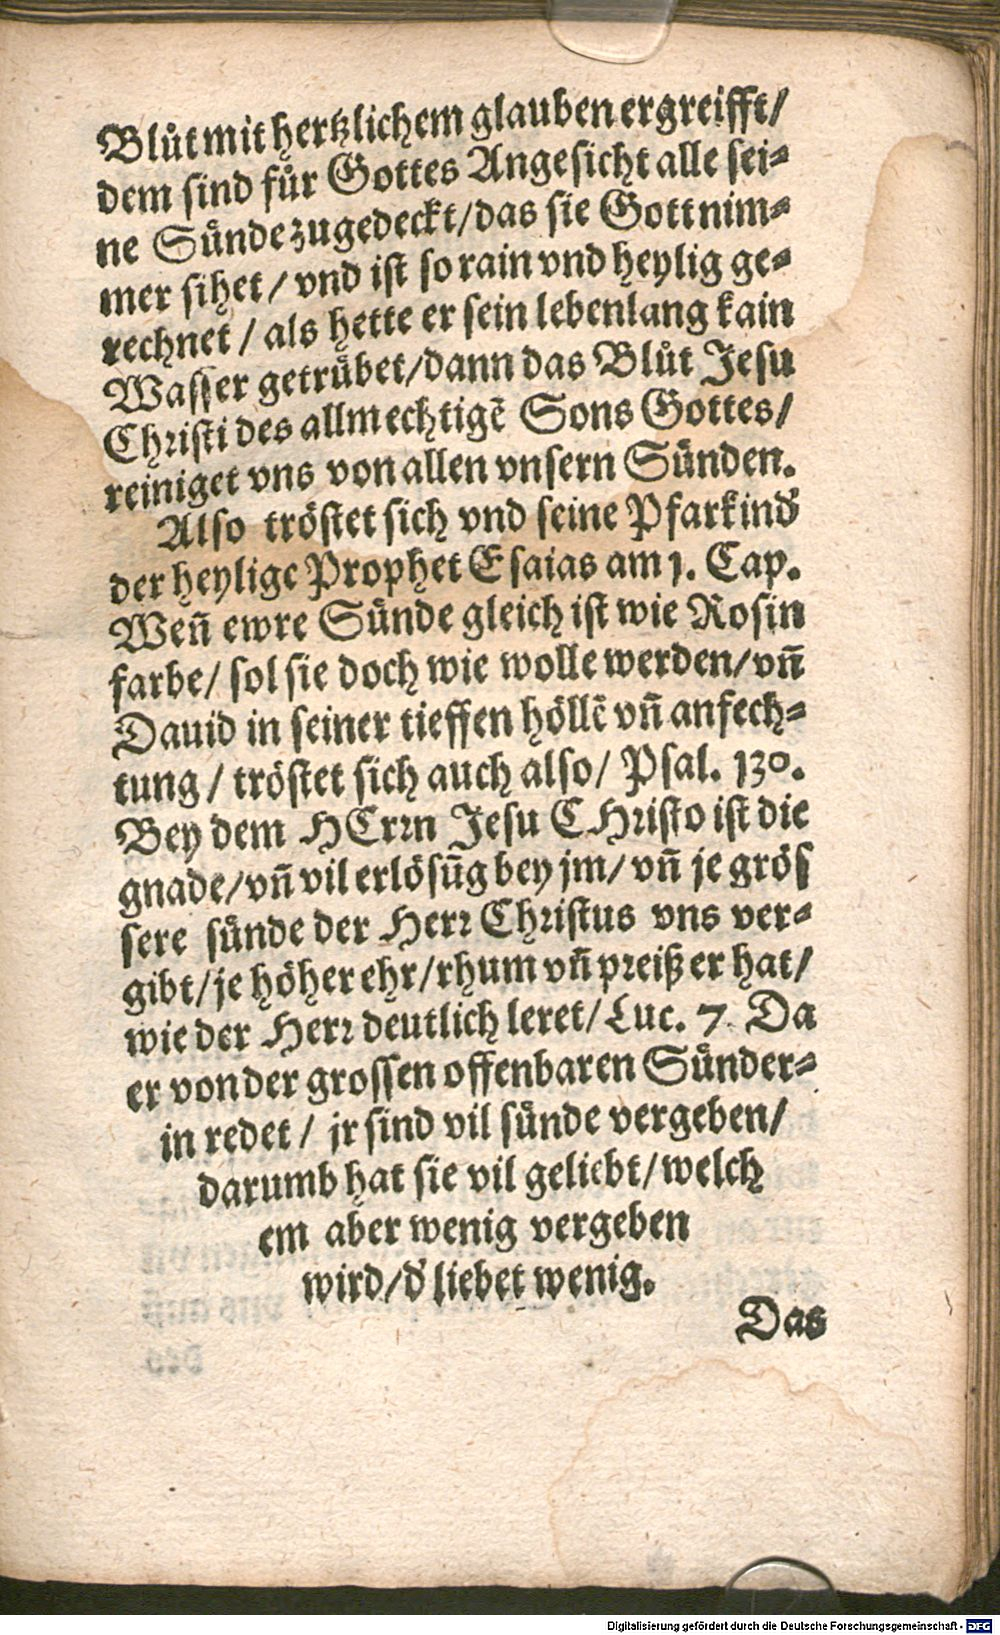 Bluͦt mit hertzlichem glauben ergreifft/
dem sind fuͤr Gottes Angesicht alle sei⸗
ne Suͤnde zugedeckt/das sie Gott nim⸗
mer sihet/ vnd ist so rain vnd heylig ge⸗
rechnet / als hette er sein lebenlang kain
Wasser getruͤbet/dann das Bluͦt Jesu
Christi des allmechtigē Sons Gottes/
reiniget vns von allen vnsern Suͤnden.
Also troͤstet sich vnd seine Pfarkind̕
der heylige Prophet Esaias am 1. Cap.
Weñ ewre Suͤnde gleich ist wie Rosin
farbe/ sol sie doch wie wolle werden/vñ
Dauid in seiner tieffen hoͤllē vñ anfech⸗
tung / troͤstet sich auch also/ Psal. 130.
Bey dem HErrn Jesu CHristo ist die
gnade/vñ vil erloͤsūg bey jm/ vñ je groͤs
sere suͤnde der Herr Christus vns ver⸗
gibt/je hoͤher ehr/rhum vñ preiß er hat/
wie der Herr deutlich leret/ Luc. 7. Da
er von der grossen offenbaren Suͤnder⸗
in redet / jr sind vil suͤnde vergeben/
darumb hat sie vil geliebt/welch
em aber wenig vergeben
wird/d̕ liebet wenig.
Das
Digitalisierung gefördert durch die Deutsche Forschungsgemeinschaft - DFG